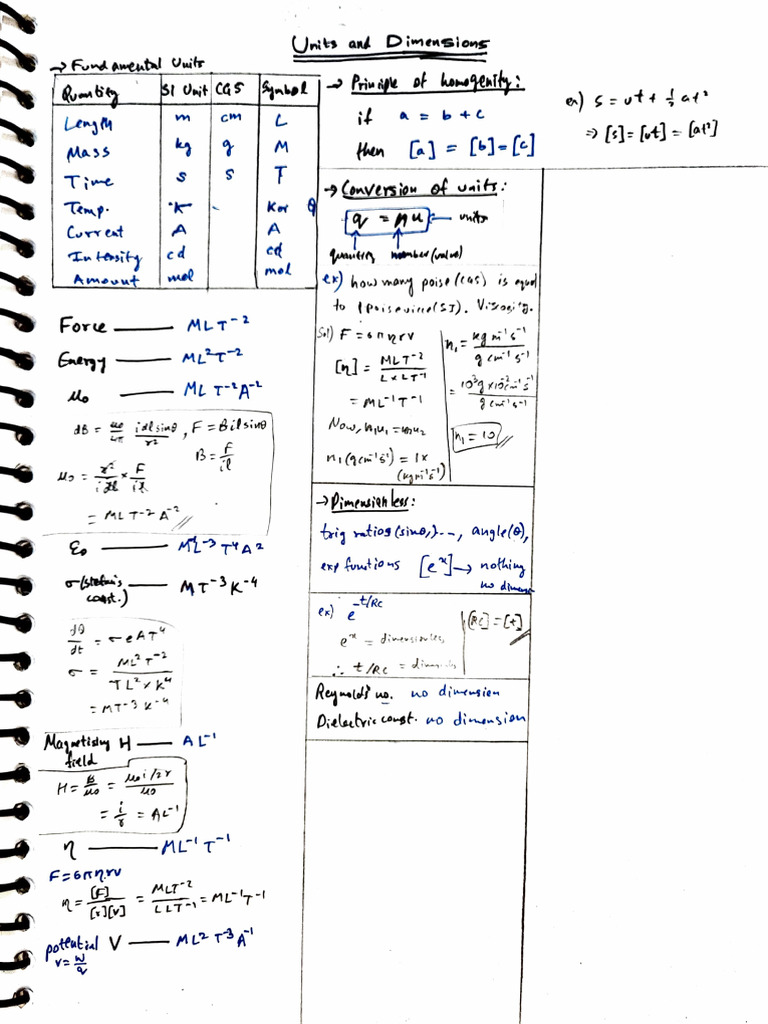 Units and Dimensions
→ Fundamental Units
Quantity SI Unit CGS Symbol
Length m cm L
Mass kg g M
Time s s T
Temp. K - K or θ
Current A A
Intensity cd cd
Amount mol mol
Force —— MLT⁻²
Energy —— ML²T⁻²
μ₀ —— MLT⁻²A⁻²
dB = μ₀/4π idlsinθ/r², F = Bilsinθ
B = F/il
μ₀ = r²/idl × F/il
= MLT⁻²A⁻²
ε₀ —— M⁻¹L⁻³T⁴A²
σ (stefan's const.) —— MT⁻³K⁻⁴
dθ/dt = σeAT⁴
σ = ML²T⁻²/TL²×K⁴
= MT⁻³K⁻⁴
Magnetising field H —— AL⁻¹
H = B/μ₀ = μ₀i/2r/μ₀
= i/r = AL⁻¹
η —— ML⁻¹T⁻¹
F = 6πηrv
η = [F]/[r][v] = MLT⁻²/LLT⁻¹ = ML⁻¹T⁻¹
potential V —— ML²T⁻³A⁻¹
v = w/q
→ Principle of homogenity:
if a = b + c
then [a] = [b] = [c]
ex) s = ut + ½at²
⇒ [s] = [ut] = [at²]
→ Conversion of units:
q = nu units
quantity number(value)
ex) how many poise(CGS) is equal
to 1 Poiseuille(SI). Viscosity.
Sol) F = 6πηrv
[η] = MLT⁻²/L×LT⁻¹
= ML⁻¹T⁻¹
Now, n₁u₁ = n₂u₂
n₁(gcm⁻¹s⁻¹) = 1×
(kgm⁻¹s⁻¹)
n₁ = kgm⁻¹s⁻¹/gcm⁻¹s⁻¹
= 10³g×10⁻²cm⁻¹s⁻¹/gcm⁻¹s⁻¹
n₁ = 10
→ Dimensionless:
trig ratios(sinθ,)---, angle(θ),
exp functions [eˣ] → nothing
no dimension
ex) e^-t/RC
eˣ = dimensionless
∴ t/RC = dimensionless
[RC] = [t]
Reynold's no. no dimension
Dielectric const. no dimension